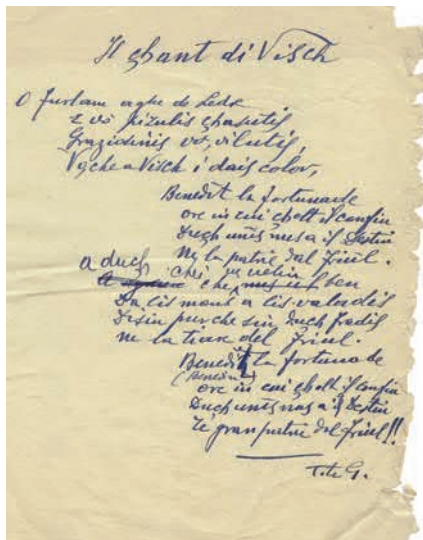 Il ghant di Visch
O furlane aghe de Ledr
E vo pizulis ghasutis
Graziosinis vo, vilutis,
Vo che a Visch i dais color,
Benedit la fortunade
ore in cui gholt il confin
Duch unês nus a il Destin
Ne la patrie dal Friul.
a duch chei
che ben
Da lis monts a lis valadis
Disin purche sin duch fradis
ne la tiare del Friul.
Benedit la fortunade
(Benedin)
ore in cui gholt il confin
Duch unês nus a il Destin
Te gran patrie dal Friul!!
T. te G.